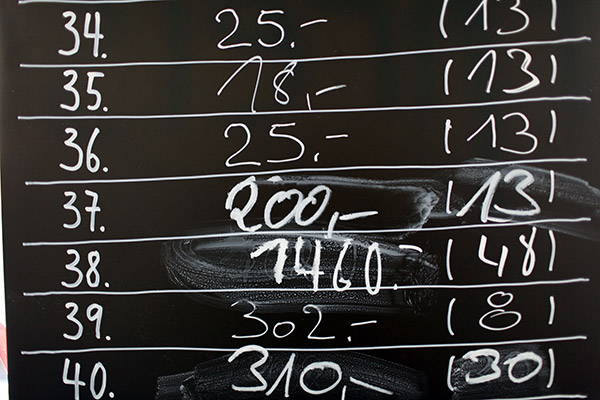 34. 25.- (13)
35. 18,- (13)
36. 25.- (13)
37. 200,- (13)
38. 1460.- (48)
39. 302.- (8)
40. 310,- (30)